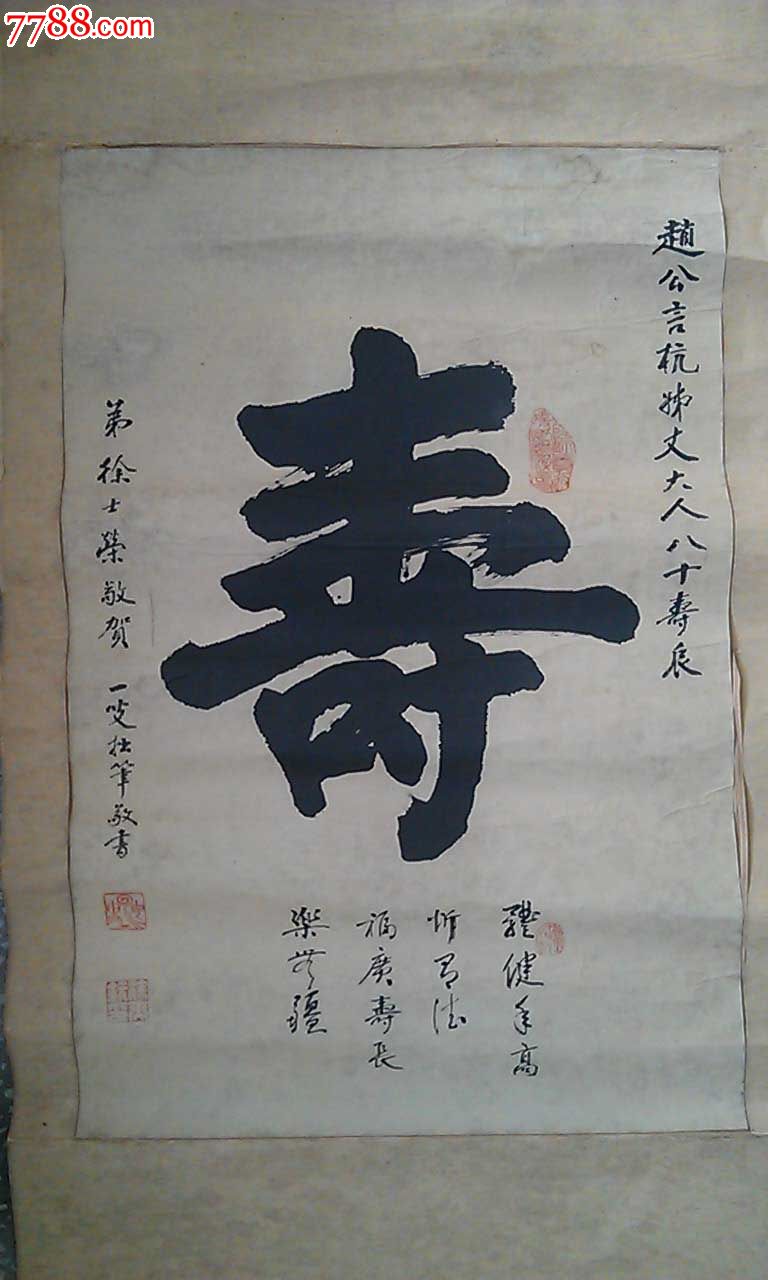 7788.com
趙公言杭姊丈大人八十壽辰
壽
體健年高
福廣壽長
樂無疆
弟徐士榮敬贺 一叟拙筆敬書